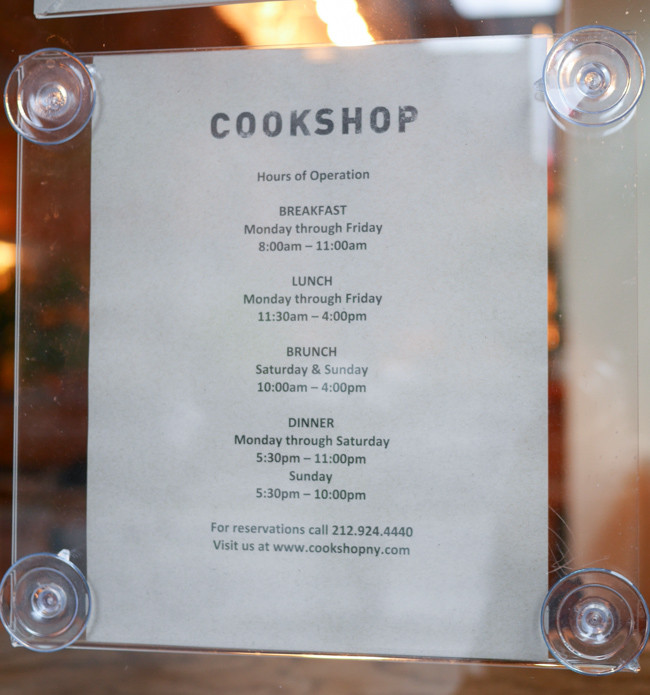 COOKSHOP
Hours of Operation
BREAKFAST
Monday through Friday
8:00am – 11:00am
LUNCH
Monday through Friday
11:30am – 4:00pm
BRUNCH
Saturday & Sunday
10:00am – 4:00pm
DINNER
Monday through Saturday
5:30pm – 11:00pm
Sunday
5:30pm – 10:00pm
For reservations call 212.924.4440
Visit us at www.cookshopny.com